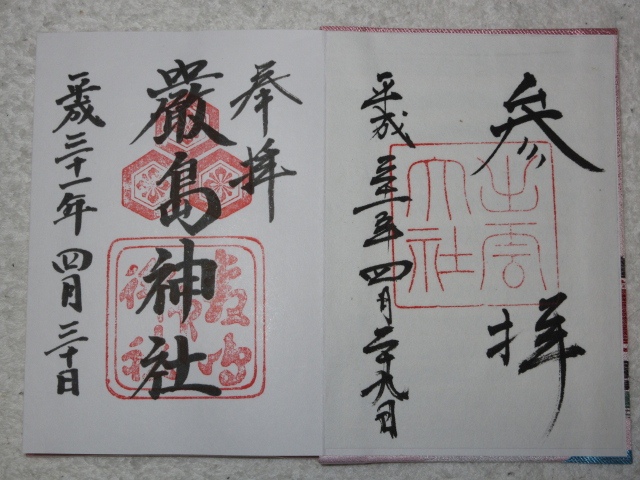 参拝
出雲
大社
平成三十一年四月二十九日
奉拝
厳島神社
平成三十一年四月三十日